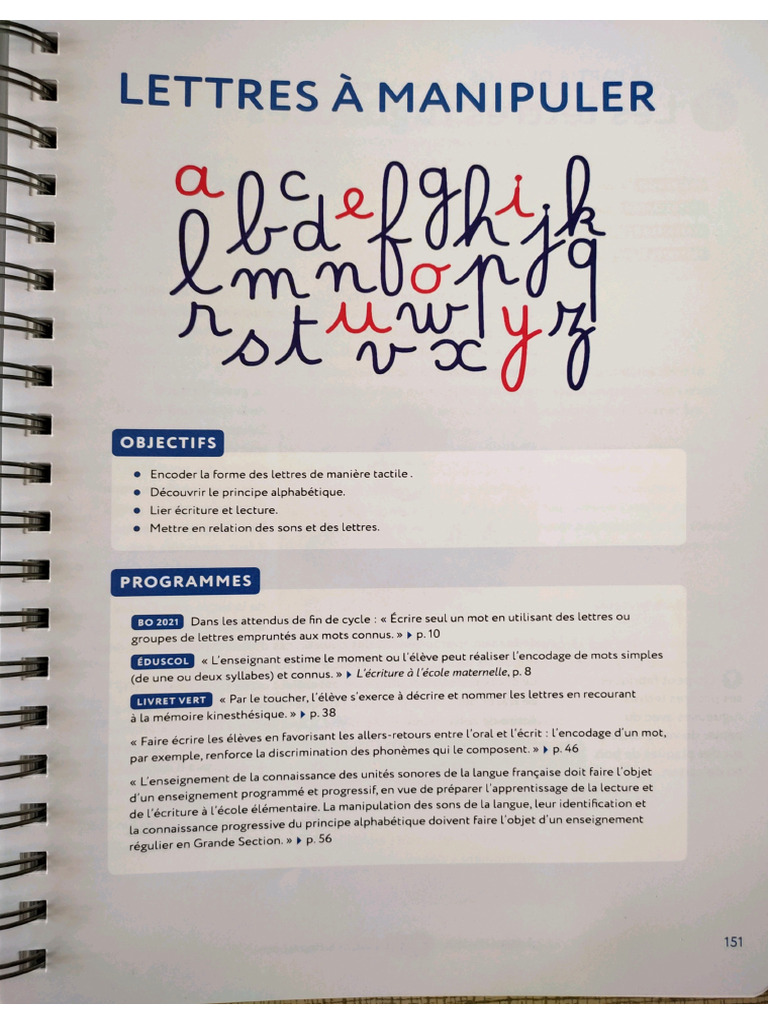 LETTRES À MANIPULER
a b c d e f g h i j k
l m n o p q
r s t u v w x y z
OBJECTIFS
• Encoder la forme des lettres de manière tactile .
• Découvrir le principe alphabétique.
• Lier écriture et lecture.
• Mettre en relation des sons et des lettres.
PROGRAMMES
BO 2021 Dans les attendus de fin de cycle : « Écrire seul un mot en utilisant des lettres ou
groupes de lettres empruntés aux mots connus. » ▸ p. 10
ÉDUSCOL « L'enseignant estime le moment ou l'élève peut réaliser l'encodage de mots simples
(de une ou deux syllabes) et connus. » ▸ L'écriture à l'école maternelle, p. 8
LIVRET VERT « Par le toucher, l'élève s'exerce à décrire et nommer les lettres en recourant
à la mémoire kinesthésique. » ▸ p. 38
« Faire écrire les élèves en favorisant les allers-retours entre l'oral et l'écrit : l'encodage d'un mot,
par exemple, renforce la discrimination des phonèmes qui le composent. » ▸ p. 46
« L'enseignement de la connaissance des unités sonores de la langue française doit faire l'objet
d'un enseignement programmé et progressif, en vue de préparer l'apprentissage de la lecture et
de l'écriture à l'école élémentaire. La manipulation des sons de la langue, leur identification et
la connaissance progressive du principe alphabétique doivent faire l'objet d'un enseignement
régulier en Grande Section. » ▸ p. 56
151